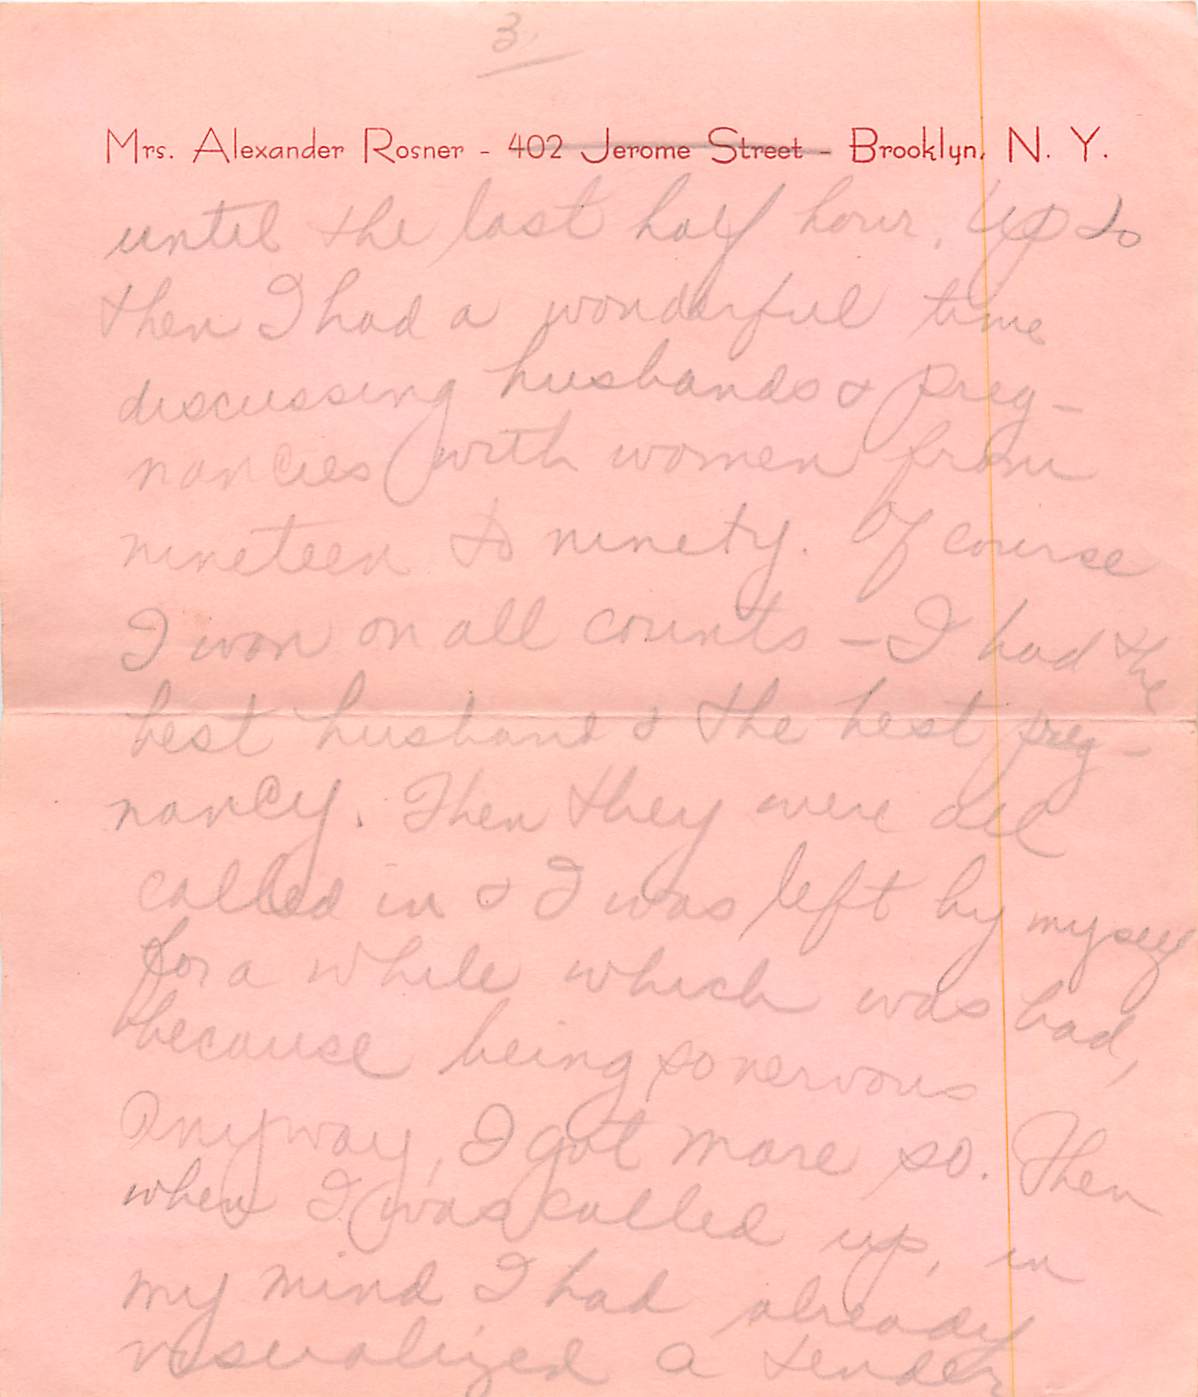 3.
Mrs. Alexander Rosner - 402 Jerome Street - Brooklyn, N. Y.
until the last half hour. Up to
then I had a wonderful time
discussing husbands & preg-
nancies with women from
nineteen to ninety. Of course
I won on all counts - I had the
best husband & the best preg-
nancy. Then they were all
called in & I was left by myself
for a while which was bad,
because being so nervous
anyway, I got more so. Then
when I was called up, in
my mind I had already
visualized a tender